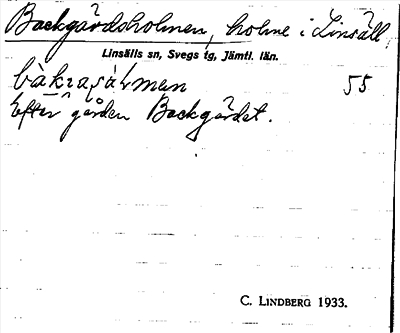 Backgårdsholmen, holme i Linsäll,
Linsälls sn, Svegs tg, Jämtl. län.
55
Efter gården Backgårdet.
C. LINDBERG 1933.